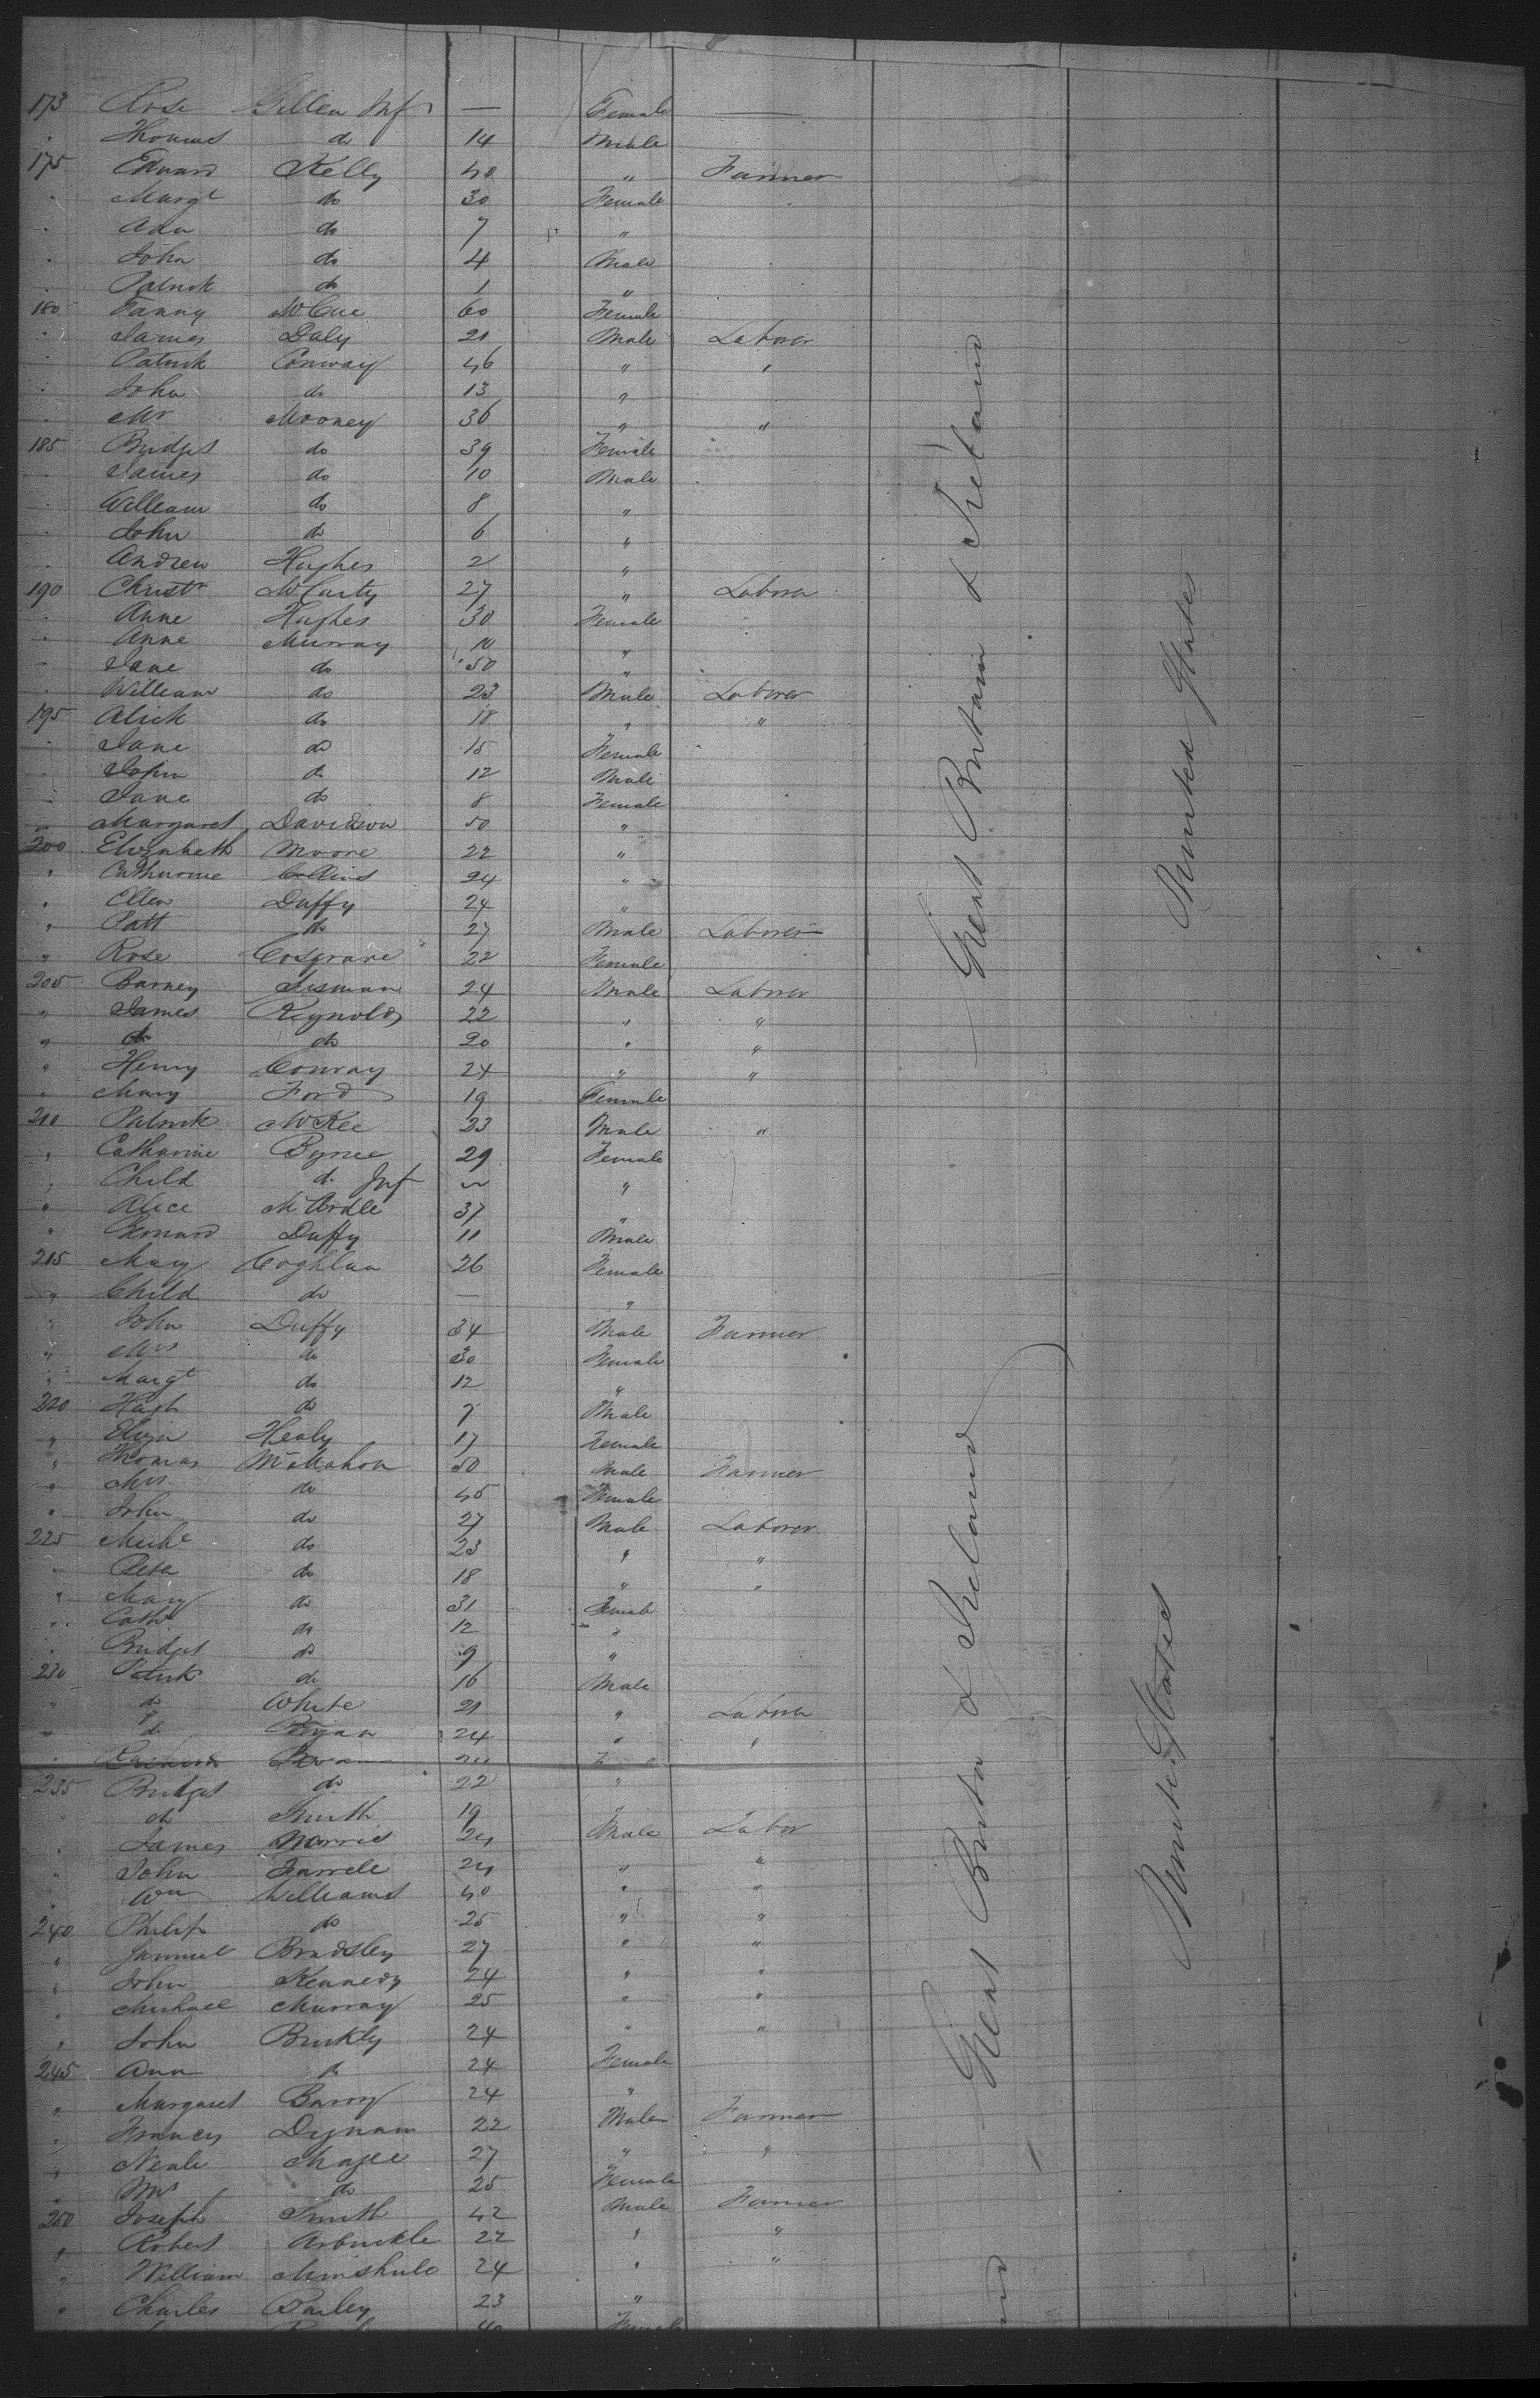 173 Rose Gillen Inf — Female —
" Thomas do 14 Male
175 Edward Kelly 40 " Farmer
" Margt do 30 Female
" Ada do 7 "
" John do 4 Male
" Patrick do 1 "
180 Fanny McCue 60 Female
" James Daly 21 Male Laborer
" Patrick Conway 46 " "
" John do 13 "
" Mr Mooney 36 " "
185 Bridget do 39 Female
" James do 10 Male
" William do 8 "
" John do 6 "
" Andrew Hughes 2 "
190 Christr McCarty 27 " Laborer
" Anne Hughes 30 Female
" Anne Murray 10 "
" Jane do 50 "
" William do 23 Male Laborer
195 Alick do 18 " "
" Jane do 15 Female
" John do 12 Male
" Jane do 8 Female
" Margaret Davidson 50 "
200 Elizabeth Moore 22 "
" Catharine Collins 24 "
" Ellen Duffy 24 "
" Patt do 27 Male Laborer
" Rose Cosgrave 22 Female
205 Barney 24 Male Laborer
" James Reynolds 22 " "
" do do 20 " "
" Henry Conray 24 " "
" Mary Ford 19 Female
210 Patrick McKee 23 Male "
" Catharine Byrne 29 Female
" Child do Inf "
" Alice McArdle 37 "
" Bernard Duffy 11 Male
215 Mary Coghlan 26 Female
" Child do — "
" John Duffy 34 Male Farmer
" Mrs do 30 Female
" Margt do 12 "
220 Hugh do 7 Male
" Eliza Healy 17 Female
" Thomas McMahon 50 Male Farmer
" Mrs do 45 Female
" John do 27 Male Laborer
225 Michl do 23 " "
" Peter do 18 " "
" Mary do 31 Female
" Cath do 12 "
" Bridget do 9 "
230 Patrick do 16 Male
" do White 21 " Laborer
" do Bryan 24 " "
235 Bridget do 22 "
" do Smith 19 "
" James Morris 24 Male Labor
" John Farrell 24 " "
" Wm Williams 40 " "
240 Philip do 25 " "
" Samuel Bradsley 27 " "
" John Kennedy 24 " "
" Michael Murray 25 " "
" John Buckly 24 " "
245 Ann do 24 Female
" Margaret Barry 24 "
" Francis Dignam 22 Male Farmer
" Neale Magee 27 " "
" Mrs do 25 Female
250 Joseph Smith 42 Male Farmer
" Robert Arbuckle 22 " "
" William Minshull 24 " "
" Charles Barley 23 "
40 Female
Great Britain & Ireland
Great Brita & Ireland
United States
United States